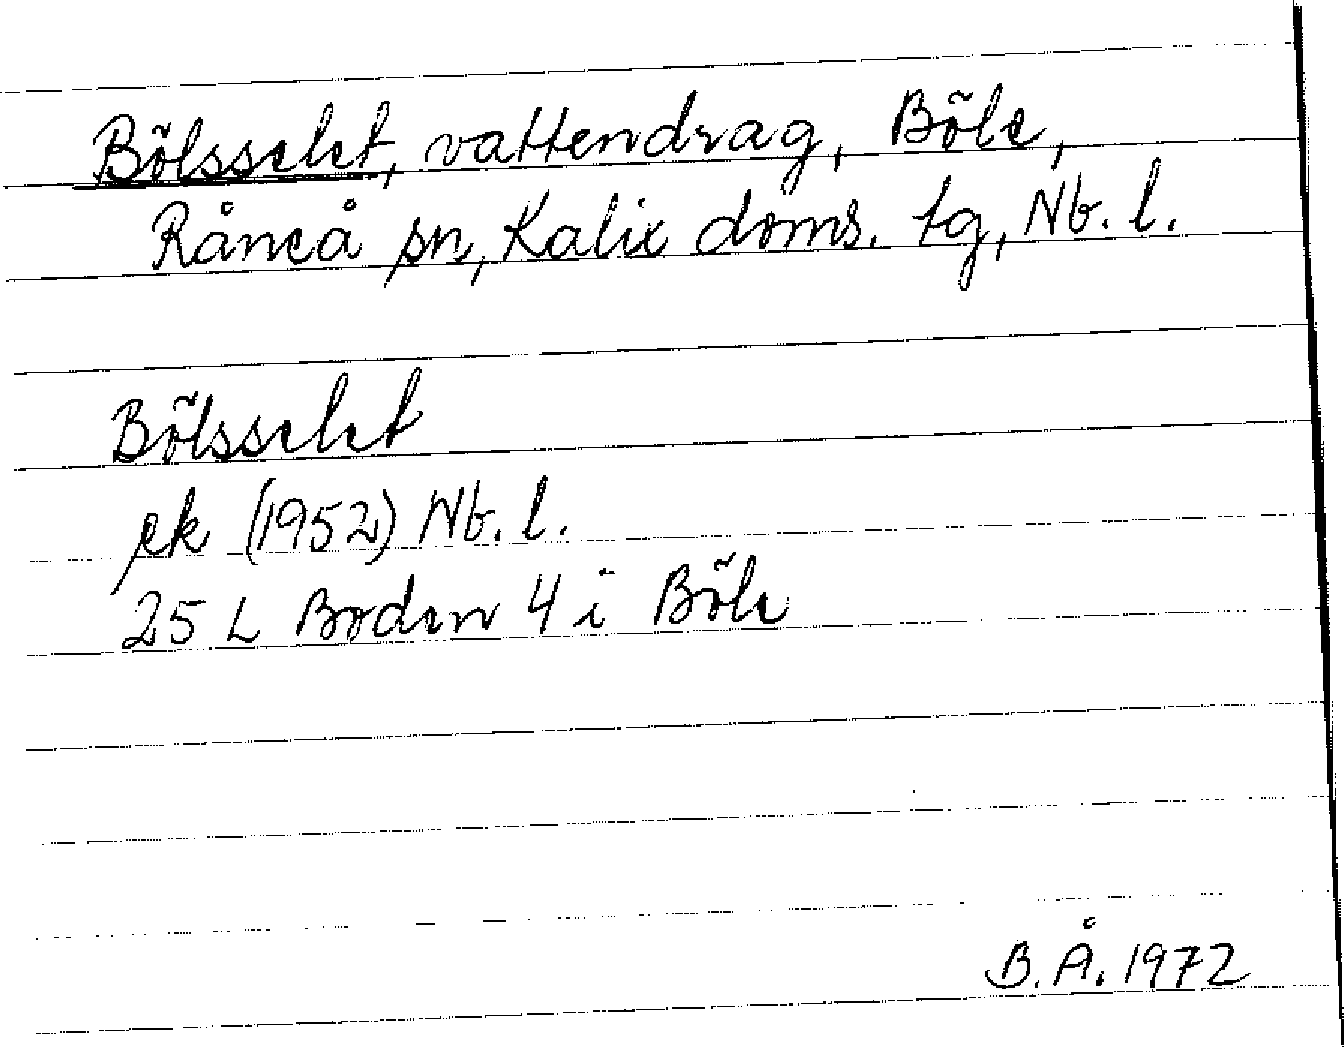 Bölsselet, vattendrag, Böle,
Råneå sn, Kalix doms. tg, Nb. l.
Bölsselet
ek (1952) Nb. l.
25 L Boden 4 i Böle
B. Å. 1972